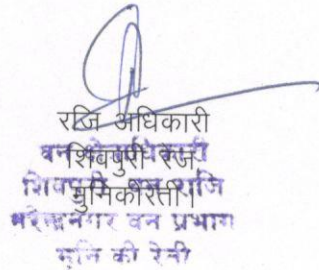 रजि अधिकारी
शिवपुरी रेंज
मुनिकीरेती।
वन क्षेत्राधिकारी
शिवपुरी वन राजि
नरेन्द्रनगर वन प्रभाग
मुनि की रेती